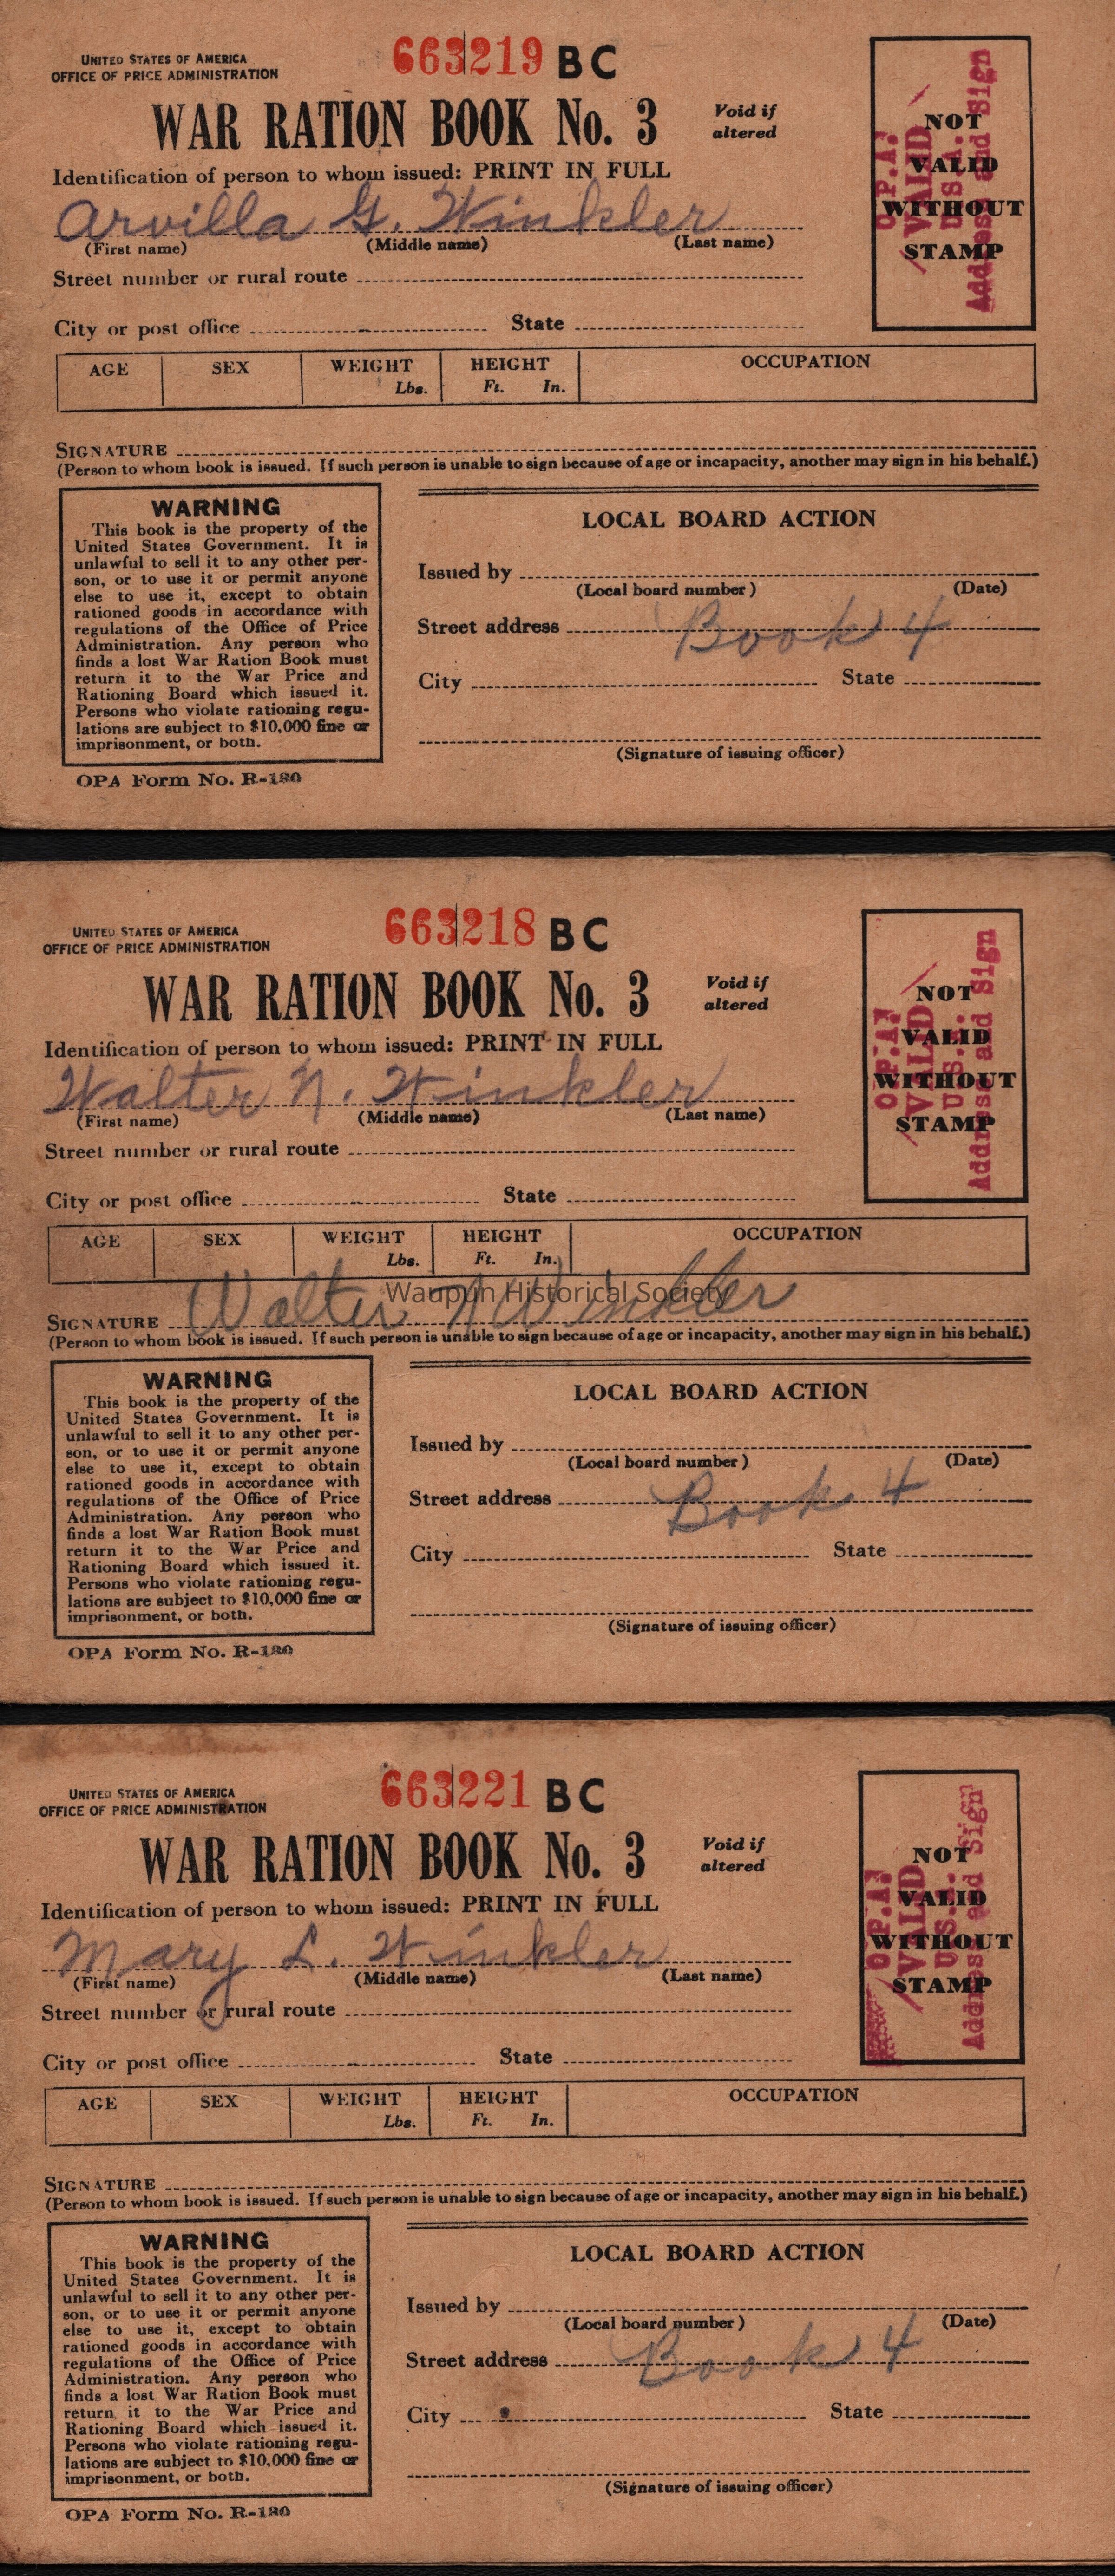 UNITED STATES OF AMERICA
OFFICE OF PRICE ADMINISTRATION
663219 BC
WAR RATION BOOK No. 3
Void if
altered
NOT
VALID
WITHOUT
STAMP
O.P.A.
VALID
U.S.A.
Address and Sign
Identification of person to whom issued: PRINT IN FULL
Arvilla G. Winkler
(First name) (Middle name) (Last name)
Street number or rural route
City or post office State
AGE SEX WEIGHT HEIGHT OCCUPATION
Lbs. Ft. In.
SIGNATURE
(Person to whom book is issued. If such person is unable to sign because of age or incapacity, another may sign in his behalf.)
WARNING
This book is the property of the
United States Government. It is
unlawful to sell it to any other per-
son, or to use it or permit anyone
else to use it, except to obtain
rationed goods in accordance with
regulations of the Office of Price
Administration. Any person who
finds a lost War Ration Book must
return it to the War Price and
Rationing Board which issued it.
Persons who violate rationing regu-
lations are subject to $10,000 fine or
imprisonment, or both.
OPA Form No. R-130
LOCAL BOARD ACTION
Issued by
(Local board number) (Date)
Street address Book 4
City State
(Signature of issuing officer)
UNITED STATES OF AMERICA
OFFICE OF PRICE ADMINISTRATION
663218 BC
WAR RATION BOOK No. 3
Void if
altered
NOT
VALID
WITHOUT
STAMP
O.P.A.
VALID
U.S.A.
Address and Sign
Identification of person to whom issued: PRINT IN FULL
Walter N. Winkler
(First name) (Middle name) (Last name)
Street number or rural route
City or post office State
AGE SEX WEIGHT HEIGHT OCCUPATION
Lbs. Ft. In.
Waupun Historical Society
SIGNATURE Walter N Winkler
(Person to whom book is issued. If such person is unable to sign because of age or incapacity, another may sign in his behalf.)
WARNING
This book is the property of the
United States Government. It is
unlawful to sell it to any other per-
son, or to use it or permit anyone
else to use it, except to obtain
rationed goods in accordance with
regulations of the Office of Price
Administration. Any person who
finds a lost War Ration Book must
return it to the War Price and
Rationing Board which issued it.
Persons who violate rationing regu-
lations are subject to $10,000 fine or
imprisonment, or both.
OPA Form No. R-130
LOCAL BOARD ACTION
Issued by
(Local board number) (Date)
Street address Book 4
City State
(Signature of issuing officer)
UNITED STATES OF AMERICA
OFFICE OF PRICE ADMINISTRATION
663221 BC
WAR RATION BOOK No. 3
Void if
altered
NOT
VALID
WITHOUT
STAMP
O.P.A.
VALID
U.S.A.
Address and Sign
Identification of person to whom issued: PRINT IN FULL
Mary L. Winkler
(First name) (Middle name) (Last name)
Street number or rural route
City or post office State
AGE SEX WEIGHT HEIGHT OCCUPATION
Lbs. Ft. In.
SIGNATURE
(Person to whom book is issued. If such person is unable to sign because of age or incapacity, another may sign in his behalf.)
WARNING
This book is the property of the
United States Government. It is
unlawful to sell it to any other per-
son, or to use it or permit anyone
else to use it, except to obtain
rationed goods in accordance with
regulations of the Office of Price
Administration. Any person who
finds a lost War Ration Book must
return it to the War Price and
Rationing Board which issued it.
Persons who violate rationing regu-
lations are subject to $10,000 fine or
imprisonment, or both.
OPA Form No. R-130
LOCAL BOARD ACTION
Issued by
(Local board number) (Date)
Street address Book 4
City State
(Signature of issuing officer)